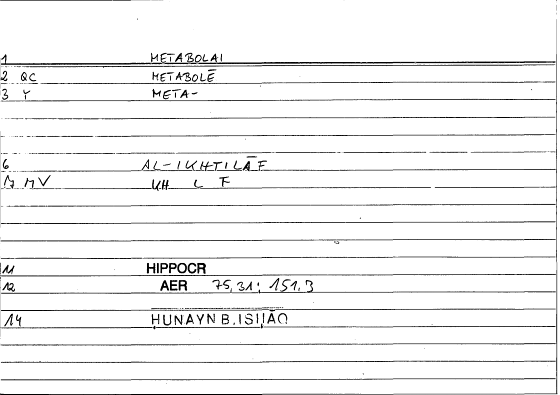 1 METABOLAI
2 QC METABOLĒ
3 Y META-
6 AL-IKHTILĀF
17 MV KH L F
11 HIPPOCR
12 AER 75,31; 151,3
14 ḤUNAYN B. ISḤĀQ